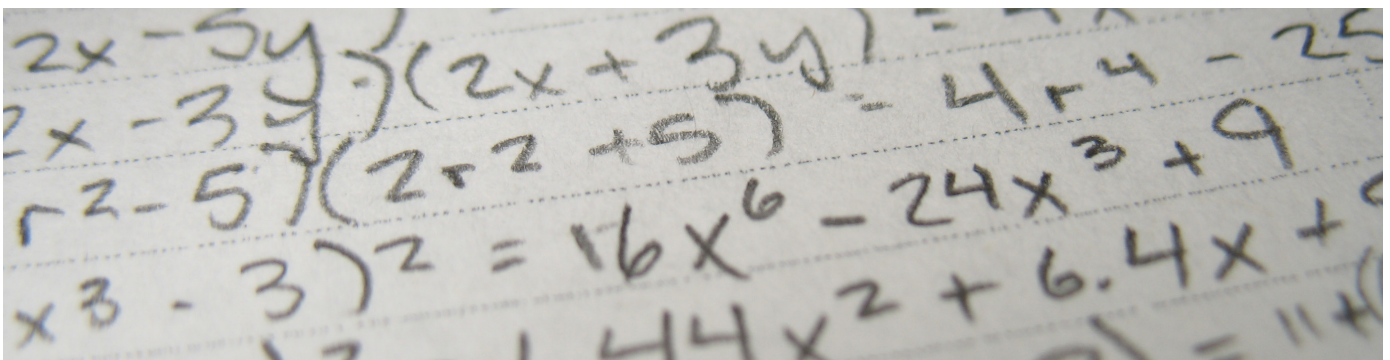 2x - 5y)
2x - 3y)(2x + 3y) = 4x
r² - 5)(2r² + 5) = 4r⁴ - 25
x³ - 3)² = 16x⁶ - 24x³ + 9
44x² + 6.4x +
= 11 + (